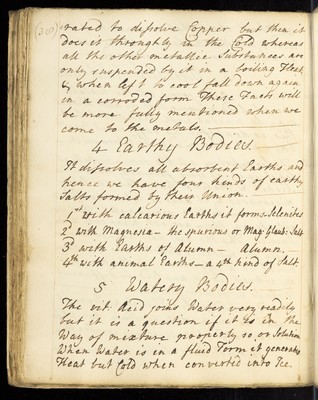 (300) rated to dissolve Copper but then it
does it throughly in the Cold whereas
all the other metallic Substances are
only suspended by it in a boiling Heat
& when left to cool fall down again
in a corroded form These Facts will
be more fully mentioned when we
come to the metals.
4 Earthy Bodies
It dissolves all absorbent Earths and
hence we have four kinds of earthy
Salts formed by their Union.
1st with calcarious Earths it forms Selenites
2d with Magnesia – the spurious or Mag: Glaub: Salt
3d with Earths of Alumn – Alumn.
4th with animal Earths – a 4th kind of Salt
5 Watery Bodies.
The vit: Acid joins Water very readily
but it is a question if it is in the
Way of mixture properly so or Solution
When Water is in a fluid Form it generates
Heat but Cold when converted into Ice.